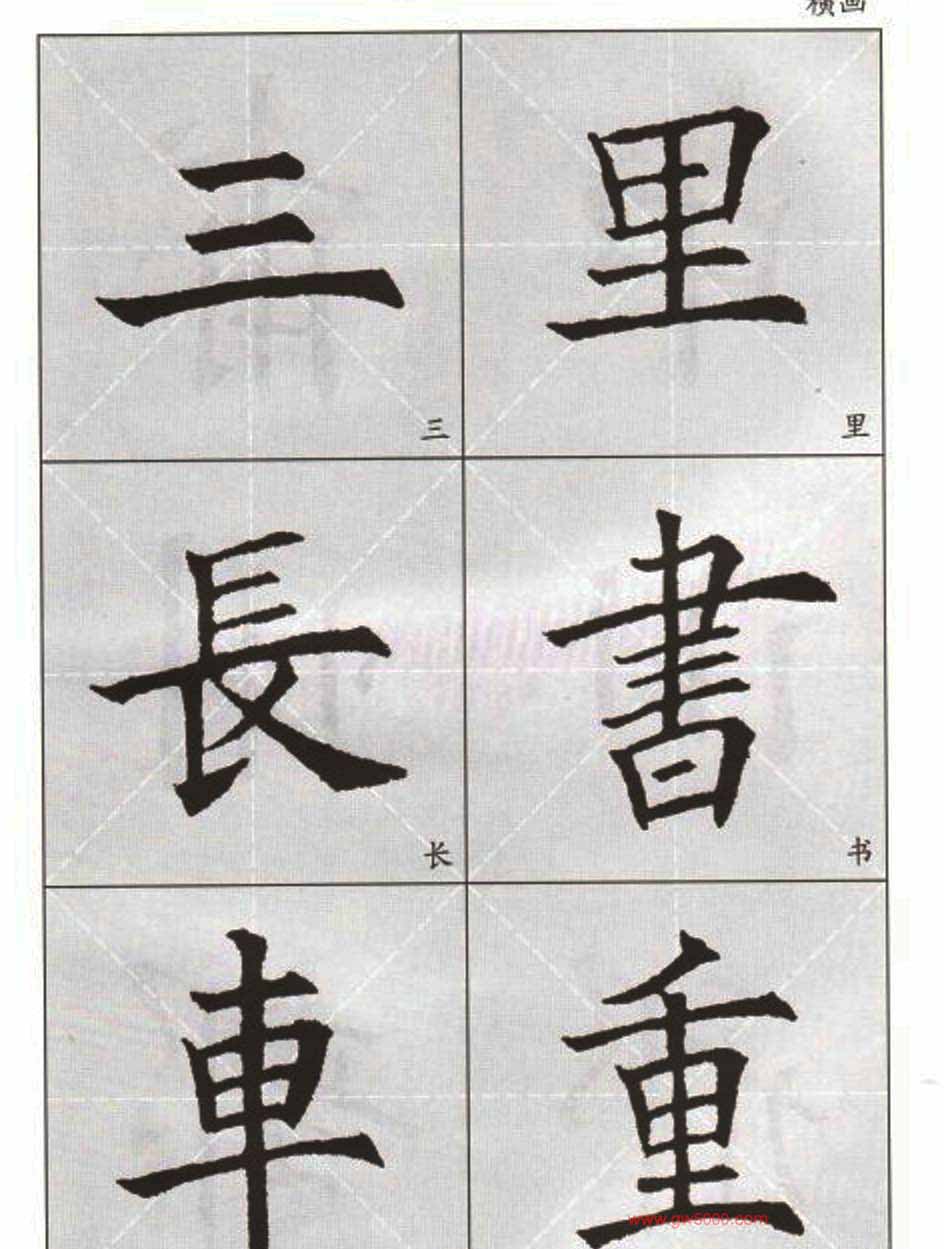 横画
三 里
三 里
長 書
长 书
車 重
www.gw5000.com